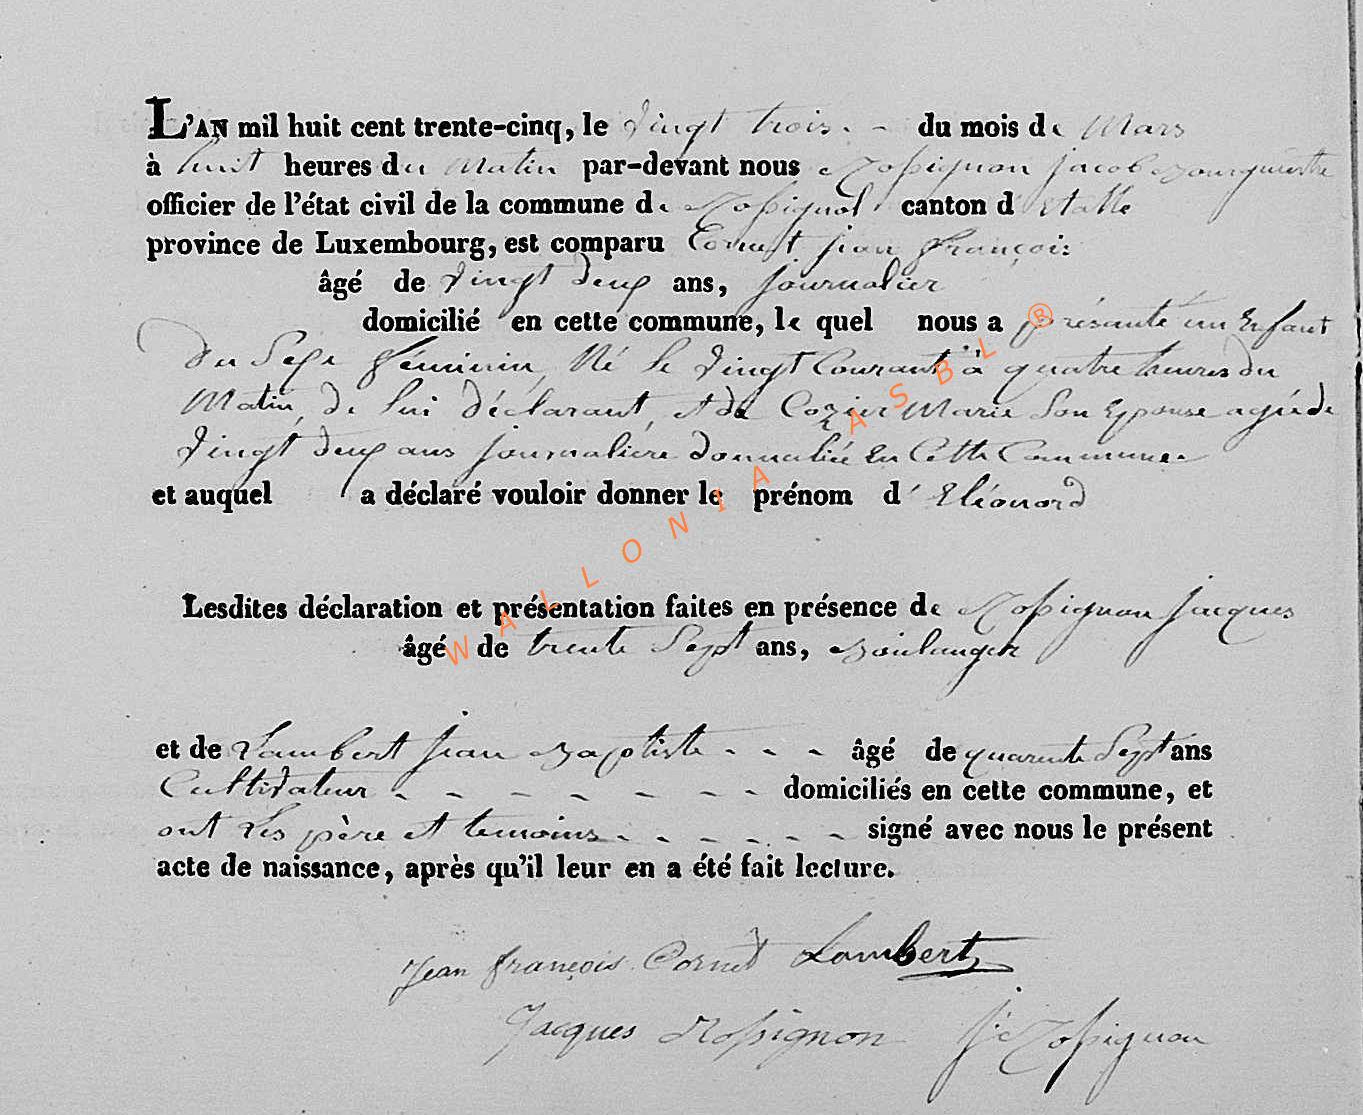 L'AN mil huit cent trente-cinq, le vingt trois du mois de Mars
à huit heures du Matin par-devant nous Rossignon Jacob Bourguestre
officier de l'état civil de la commune de Rossignol canton d'étalle
province de Luxembourg, est comparu Cornet jean françois
âgé de vingt deux ans, journalier
domicilié en cette commune, le quel nous a présanté un Enfant
du Sexe féminin, Né le vingt Courant à quatre heures du
Matin, de lui déclarant, et de Cozier Marie Son Epouse agée de
vingt deux ans journalière domicilié En Cette Commune
et auquel a déclaré vouloir donner le prénom d' Eléonord
Lesdites déclaration et présentation faites en présence de Rossignon Jacques
âgé de trente Sept ans, Boulanger
et de Lambert jean Baptiste - - - âgé de quarente Sept ans
Cultivateur - - - - - - - - domiciliés en cette commune, et
ont Les père et temoins - - - - - - signé avec nous le présent
acte de naissance, après qu'il leur en a été fait lecture.
Jean françois Cornet Lambert
Jacques Rossignon J: Rossignon
WALLONIA ASBL ®